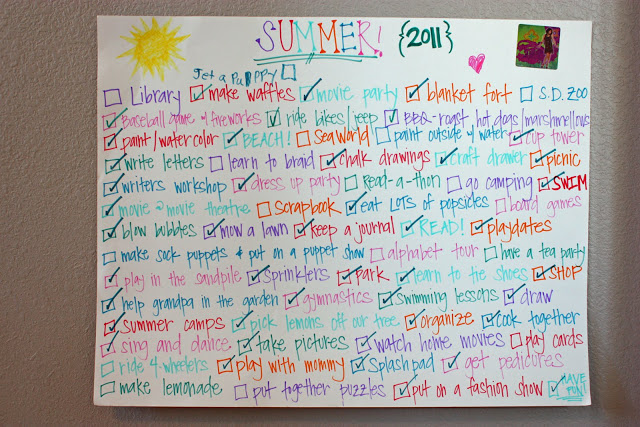 SUMMER! {2011}
Jet a PuPPPy
Library make waffles movie party blanket fort S.D. ZOO
Baseball game & fireworks ride bikes/jeep BBQ-roast hot dogs/marshmellows
paint/watercolor BEACH! Sea World paint outside w/ water cup tower
write letters learn to braid chalk drawings craft drawer picnic
writers workshop dress up party Read-a-thon go camping SWIM
movie @ movie theatre Scrapbook eat LOTS of popsicles board games
blow bubbles mow a lawn keep a journal READ! playdates
make sock puppets & put on a puppet show alphabet tour have a tea party
play in the sandpile sprinklers park learn to tie shoes SHOP
help grandpa in the garden gymnastics swimming lessons draw
summer camps pick lemons off our tree organize cook together
sing and dance take pictures watch home movies play cards
ride 4-wheelers play with mommy Splashpad get pedicures
make lemonade put together puzzles put on a fashion show HAVE FUN!